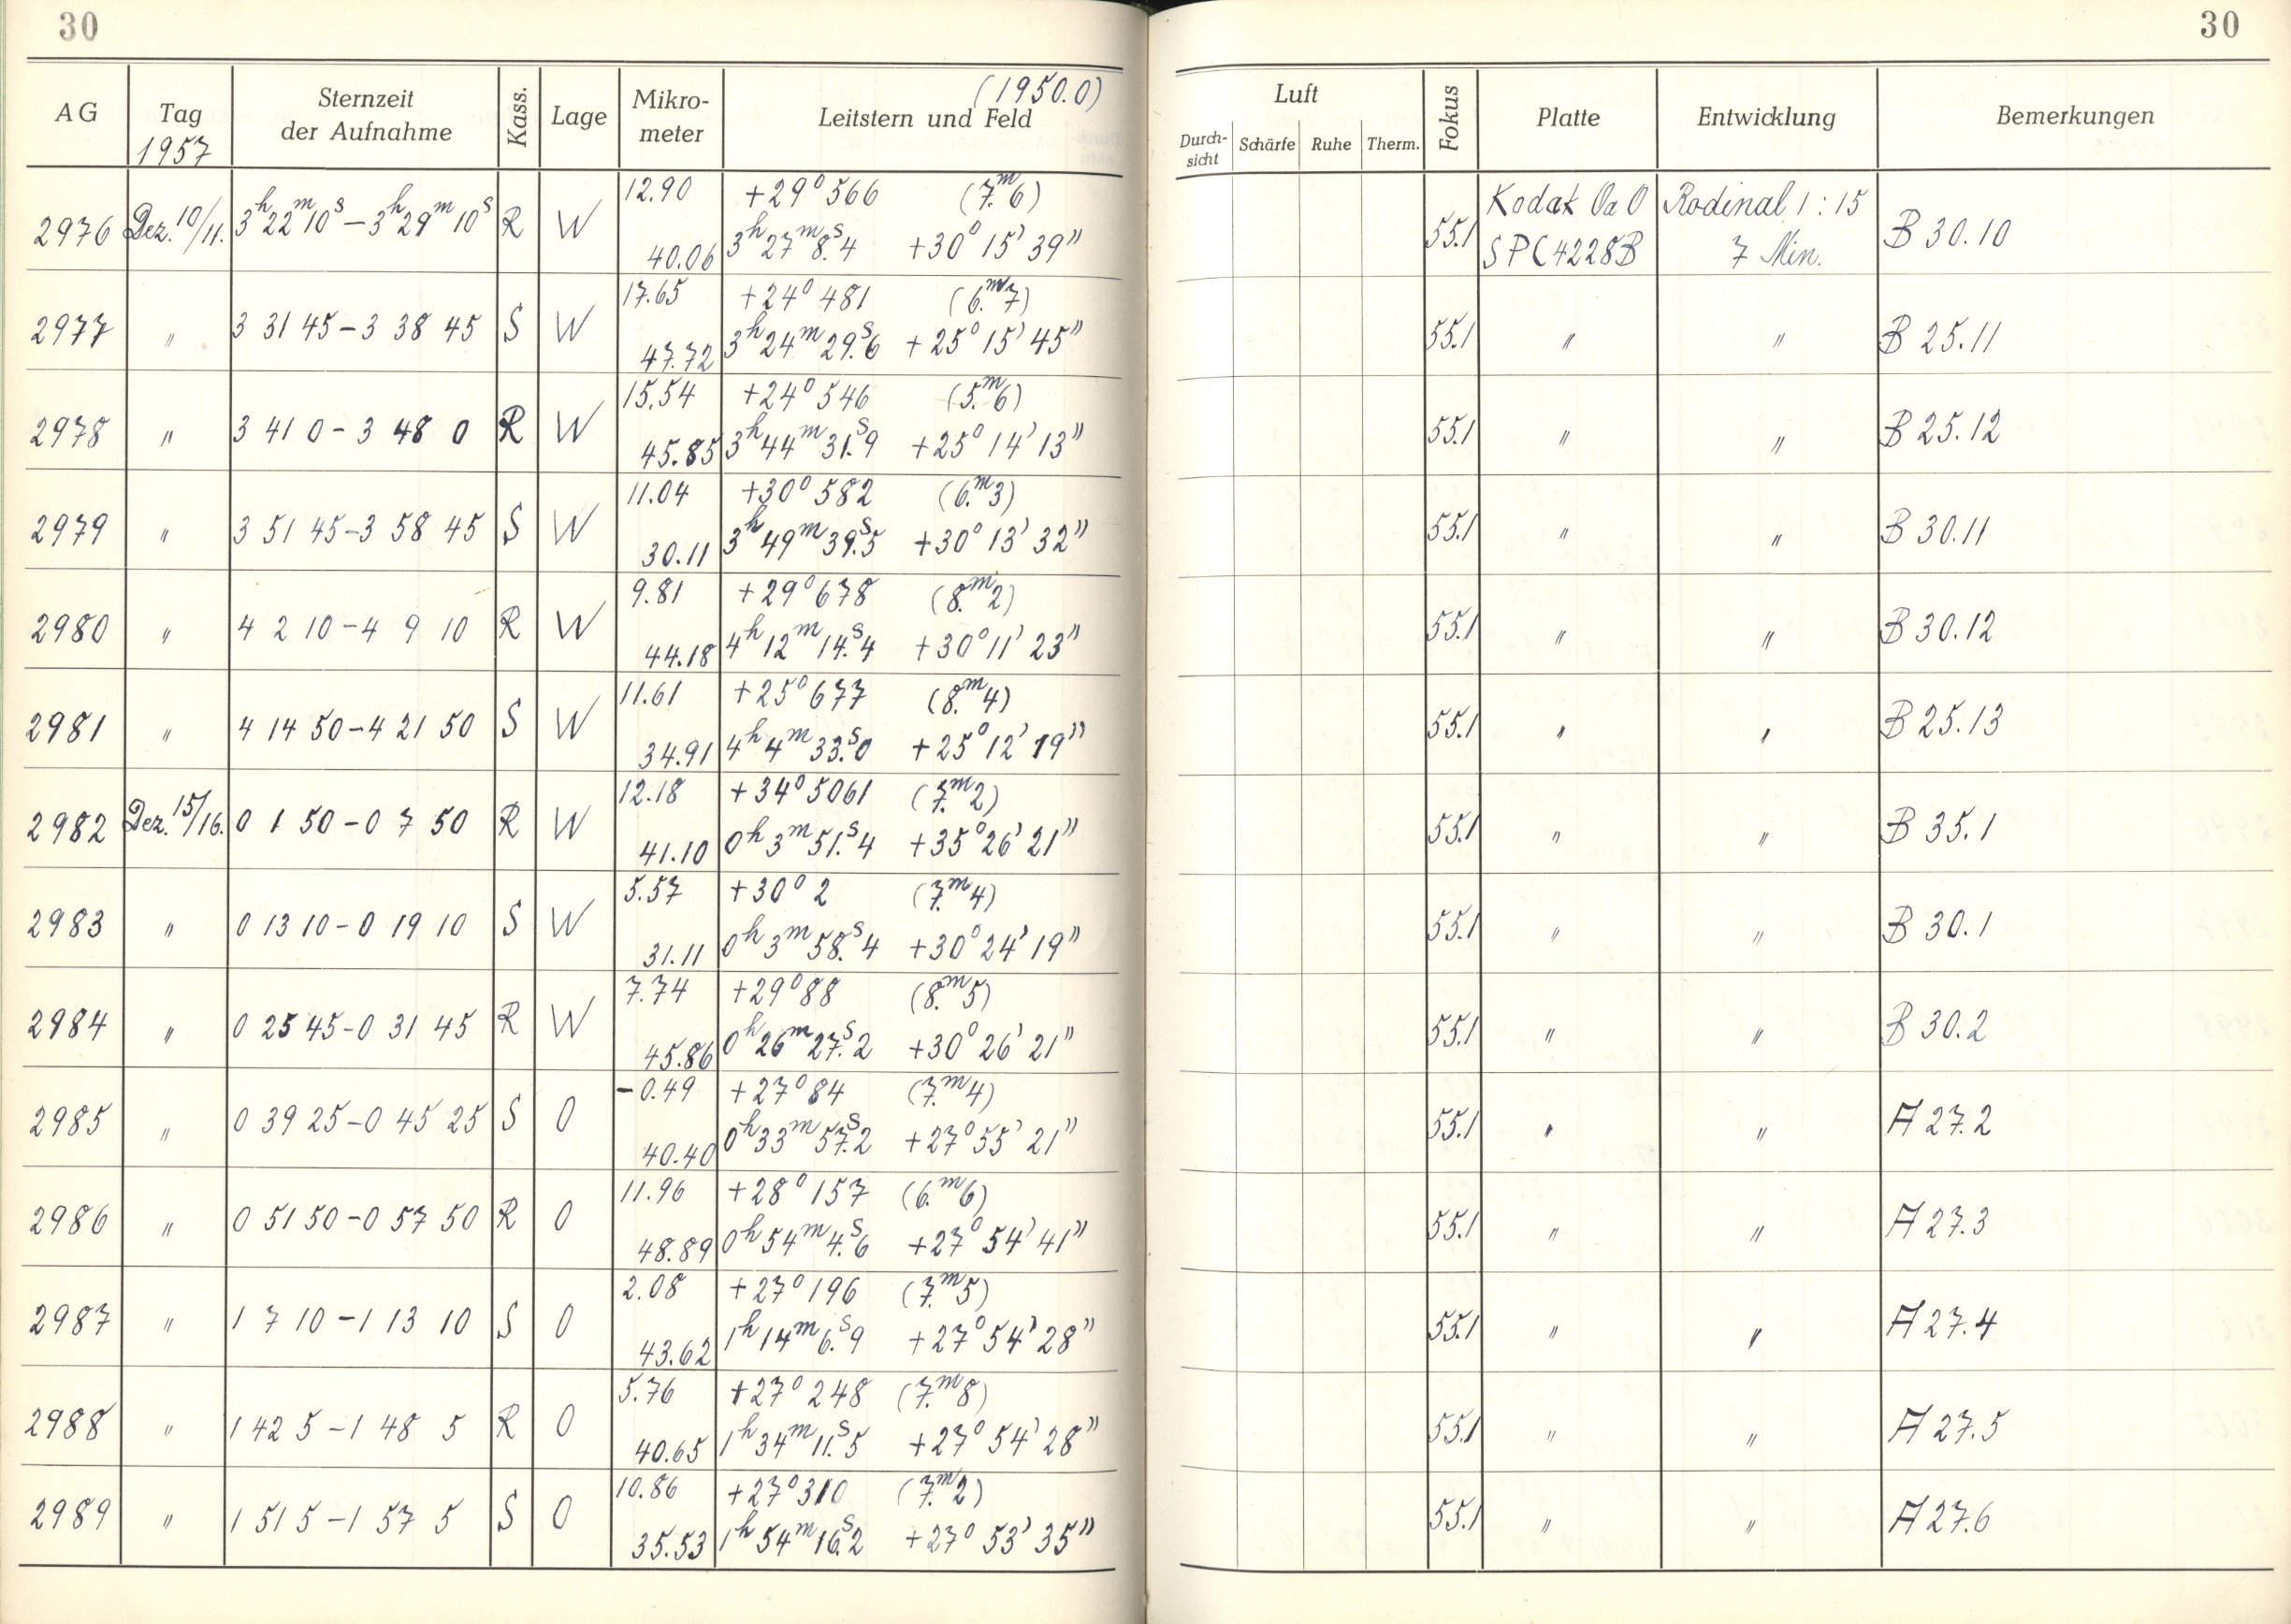 30
30
(1950.0)
AG Tag 1957 Sternzeit der Aufnahme Kass. Lage Mikro-meter Leitstern und Feld
Luft
Durch-sicht Schärfe Ruhe Therm. Fokus Platte Entwicklung Bemerkungen
12.90 +29° 566 (7.ᵐ6) Kodak OaO Rodinal 1:15
2976 Dez. 10/11. 3ʰ22ᵐ10ˢ – 3ʰ29ᵐ10ˢ R W 40.06 3ʰ27ᵐ8.ˢ4 +30° 15' 39" 55.1 SPC4228B 7 Min. B 30.10
17.65 +24° 481 (6.ᵐ7)
2977 " 3 31 45 – 3 38 45 S W 47.72 3ʰ24ᵐ29.ˢ6 +25° 15' 45" 55.1 " " B 25.11
15.54 +24° 546 (5.ᵐ6)
2978 " 3 41 0 – 3 48 0 R W 45.85 3ʰ44ᵐ31.ˢ9 +25° 14' 13" 55.1 " " B 25.12
11.04 +30° 582 (6.ᵐ3)
2979 " 3 51 45 – 3 58 45 S W 30.11 3ʰ49ᵐ39.ˢ5 +30° 13' 32" 55.1 " " B 30.11
9.81 +29° 678 (8.ᵐ2)
2980 " 4 2 10 – 4 9 10 R W 44.18 4ʰ12ᵐ14.ˢ4 +30° 11' 23" 55.1 " " B 30.12
11.61 +25° 677 (8.ᵐ4)
2981 " 4 14 50 – 4 21 50 S W 34.91 4ʰ4ᵐ33.ˢ0 +25° 12' 19" 55.1 " " B 25.13
12.18 +34° 5061 (7.ᵐ2)
2982 Dez. 15/16. 0 1 50 – 0 7 50 R W 41.10 0ʰ3ᵐ51.ˢ4 +35° 26' 21" 55.1 " " B 35.1
5.57 +30° 2 (7.ᵐ4)
2983 " 0 13 10 – 0 19 10 S W 31.11 0ʰ3ᵐ58.ˢ4 +30° 24' 19" 55.1 " " B 30.1
7.74 +29° 88 (8.ᵐ5)
2984 " 0 25 45 – 0 31 45 R W 45.86 0ʰ26ᵐ27.ˢ2 +30° 26' 21" 55.1 " " B 30.2
-0.49 +27° 84 (7.ᵐ4)
2985 " 0 39 25 – 0 45 25 S O 40.40 0ʰ33ᵐ57.ˢ2 +27° 55' 21" 55.1 " " A 27.2
11.96 +28° 157 (6.ᵐ6)
2986 " 0 51 50 – 0 57 50 R O 48.89 0ʰ54ᵐ4.ˢ6 +27° 54' 41" 55.1 " " A 27.3
2.08 +27° 196 (7.ᵐ5)
2987 " 1 7 10 – 1 13 10 S O 43.62 1ʰ14ᵐ6.ˢ9 +27° 54' 28" 55.1 " " A 27.4
5.76 +27° 248 (7.ᵐ8)
2988 " 1 42 5 – 1 48 5 R O 40.65 1ʰ34ᵐ11.ˢ5 +27° 54' 28" 55.1 " " A 27.5
10.86 +27° 310 (7.ᵐ2)
2989 " 1 51 5 – 1 57 5 S O 35.53 1ʰ54ᵐ16.ˢ2 +27° 53' 35" 55.1 " " A 27.6